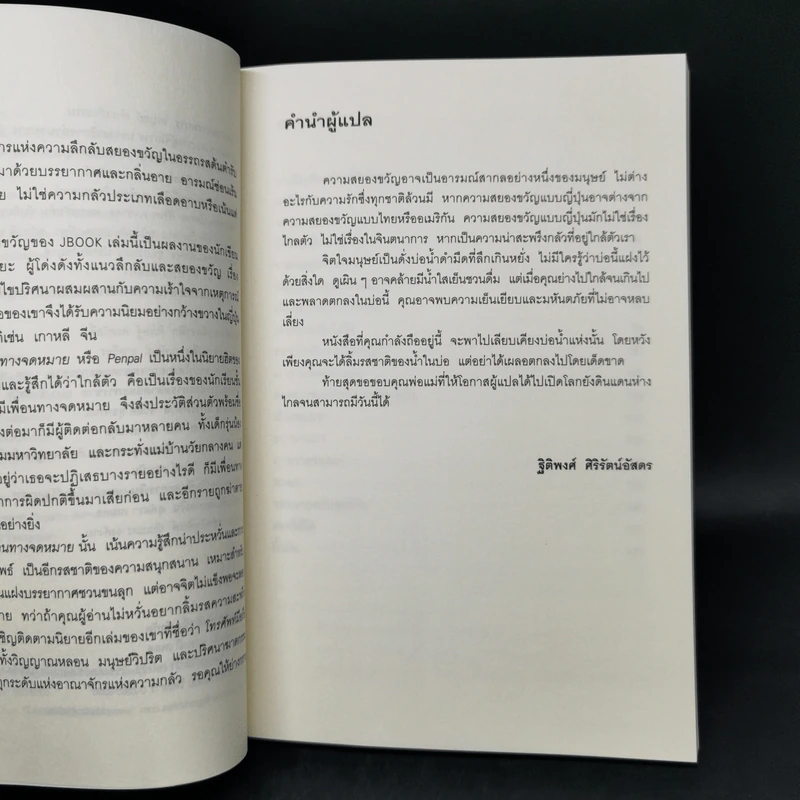 ารแห่งความลึกลับสยองขวัญในอรรถรสต้นตำรับ
มาด้วยบรรยากาศและกลิ่นอาย อารมณ์ซ่อนเร้น
ย ไม่ใช่ความกลัวประเภทเลือดอาบหรือเน้นแต่
ขวัญของ JBOOK เล่มนี้เป็นผลงานของนักเขียน
ยะ ผู้โด่งดังทั้งแนวลึกลับและสยองขวัญ เรื่อง
ไขปริศนาผสมผสานกับความเร้าใจจากเหตุการณ์
อของเขาจึงได้รับความนิยมอย่างกว้างขวางในญี่ปุ่น
ติเช่น เกาหลี จีน
ทางจดหมาย หรือ Penpal เป็นหนึ่งในนิยายฮิตของ
และรู้สึกได้ว่าใกล้ตัว คือเป็นเรื่องของนักเรียนชั้น
มีเพื่อนทางจดหมาย จึงส่งประวัติส่วนตัวพร้อมชื่อ
งต่อมาก็มีผู้ติดต่อกลับมาหลายคน ทั้งเด็กรุ่นน้อง
มมหาวิทยาลัย และกระทั่งแม่บ้านวัยกลางคน
อยู่ว่าเธอจะปฏิเสธบางรายอย่างไรดี ก็มีเพื่อนทาง
าการผิดปกติขึ้นมาเสียก่อน และอีกรายถูกฆาต
อย่างยิ่ง
นทางจดหมาย นั้น เน้นความรู้สึกน่าประหวั่นและ
พธ์ เป็นอีกรสชาติของความสนุกสนาน เหมาะสำหรับ
นแฝงบรรยากาศชวนขนลุก แต่อาจจิตไม่แข็งพอจะ
าย ทว่าถ้าคุณผู้อ่านไม่หวั่นอยากลิ้มรสความสะพรึง
เชิญติดตามนิยายอีกเล่มของเขาที่ชื่อว่า โทรศัพท์มือถือ
ทั้งวิญญาณหลอน มนุษย์วิปริต และปริศนาฆาตกรรม
ทุกระดับแห่งอาณาจักรแห่งความกลัว รอคุณให้ย่าง
คำนำผู้แปล
ความสยองขวัญอาจเป็นอารมณ์สากลอย่างหนึ่งของมนุษย์ ไม่ต่าง
อะไรกับความรักซึ่งทุกชาติล้วนมี หากความสยองขวัญแบบญี่ปุ่นอาจต่างจาก
ความสยองขวัญแบบไทยหรืออเมริกัน ความสยองขวัญแบบญี่ปุ่นมักไม่ใช่เรื่อง
ไกลตัว ไม่ใช่เรื่องในจินตนาการ หากเป็นความน่าสะพรึงกลัวที่อยู่ใกล้ตัวเรา
จิตใจมนุษย์เป็นดั่งบ่อน้ำดำมืดที่ลึกเกินหยั่ง ไม่มีใครรู้ว่าบ่อนี้แฝงไว้
ด้วยสิ่งใด ดูเผิน ๆ อาจคล้ายมีน้ำใสเย็นชวนดื่ม แต่เมื่อคุณย่างไปใกล้จนเกินไป
และพลาดตกลงในบ่อนี้ คุณอาจพบความเย็นเยียบและมหันตภัยที่ไม่อาจหลบ
เลี่ยง
หนังสือที่คุณกำลังถืออยู่นี้ จะพาไปเลียบเคียงบ่อน้ำแห่งนั้น โดยหวัง
เพียงคุณจะได้ลิ้มรสชาติของน้ำในบ่อ แต่อย่าได้เผลอตกลงไปโดยเด็ดขาด
ท้ายสุดขอขอบคุณพ่อแม่ที่ให้โอกาสผู้แปลได้ไปเปิดโลกยังดินแดนห่าง
ไกลจนสามารถมีวันนี้ได้
ฐิติพงศ์ ศิริรัตน์อัสดร